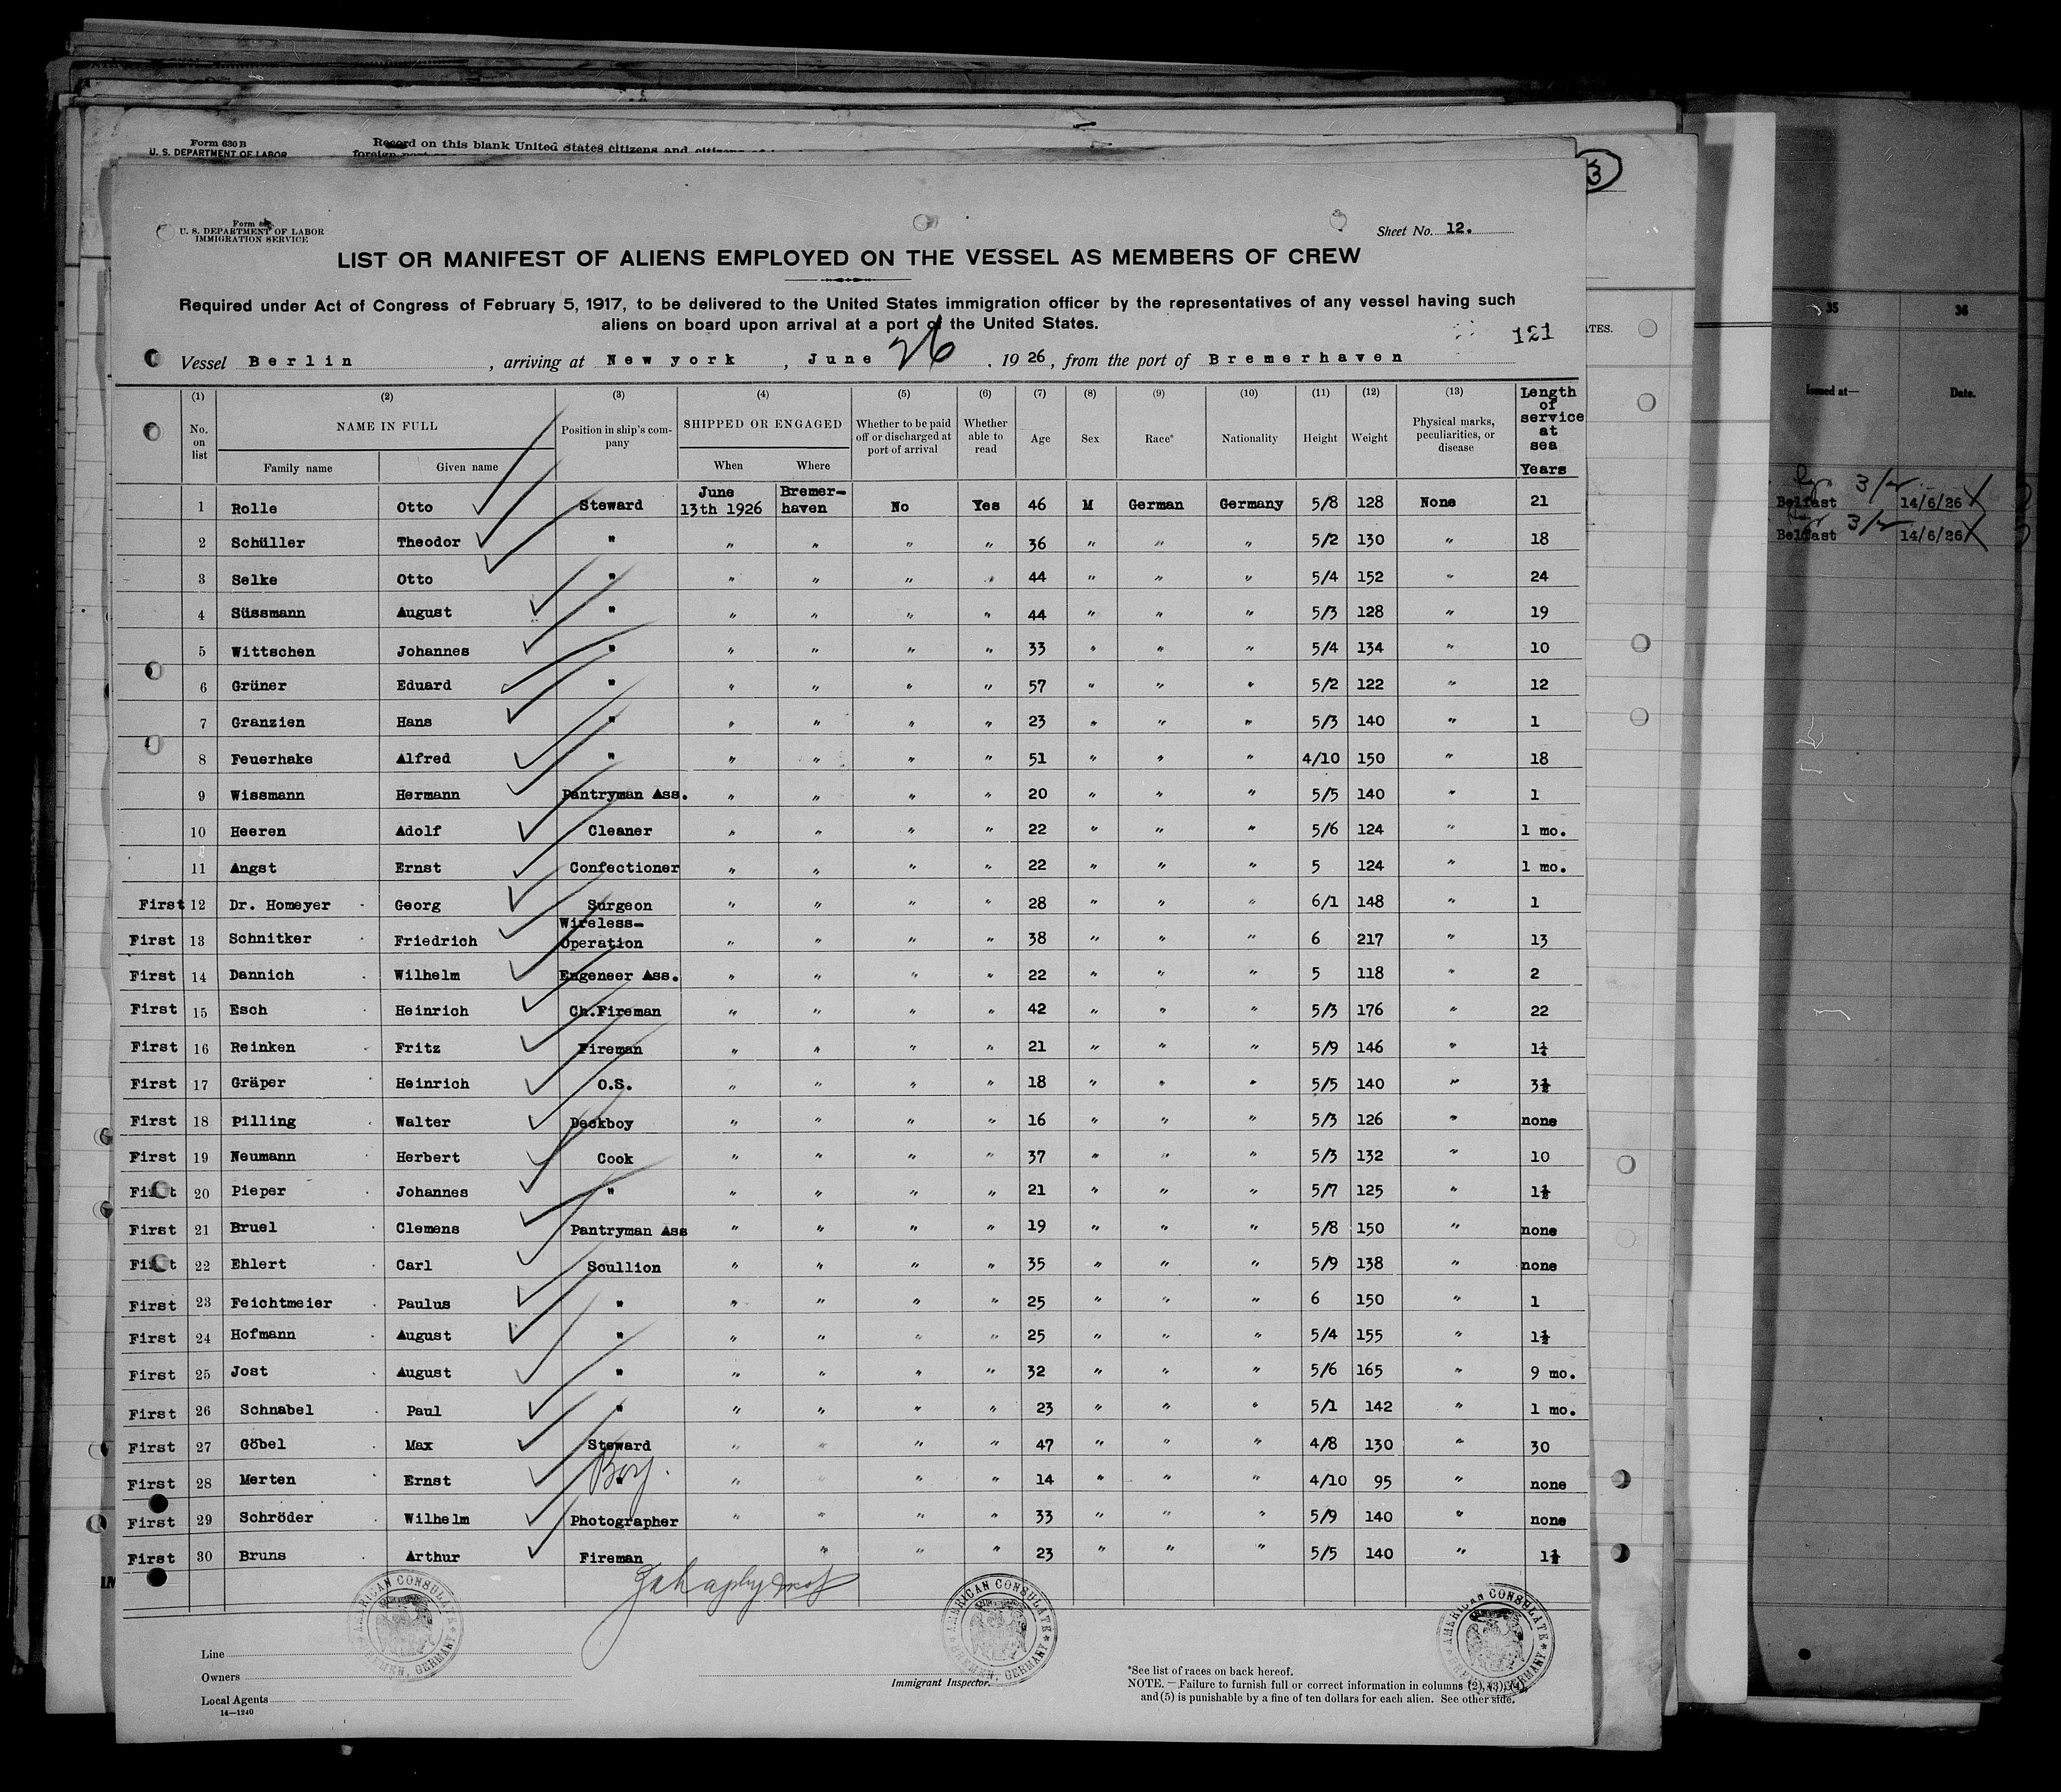 Form 630 B
U. S. DEPARTMENT OF LABOR
Record on this blank United States citizens and
3
Form
U. S. DEPARTMENT OF LABOR
IMMIGRATION SERVICE
Sheet No. 12.
LIST OR MANIFEST OF ALIENS EMPLOYED ON THE VESSEL AS MEMBERS OF CREW
Required under Act of Congress of February 5, 1917, to be delivered to the United States immigration officer by the representatives of any vessel having such
aliens on board upon arrival at a port of the United States.
121
Vessel Berlin, arriving at New york, June 26, 1926, from the port of Bremerhaven
(1) (2) (3) (4) (5) (6) (7) (8) (9) (10) (11) (12) (13) Length of service at sea Years
No. on list NAME IN FULL Family name Given name Position in ship's company SHIPPED OR ENGAGED When Where Whether to be paid off or discharged at port of arrival Whether able to read Age Sex Race* Nationality Height Weight Physical marks, peculiarities, or disease
1 Rolle Otto Steward June 13th 1926 Bremer-haven No Yes 46 M German Germany 5/8 128 None 21
2 Schüller Theodor " " " " " 36 " " " 5/2 130 " 18
3 Selke Otto " " " " " 44 " " " 5/4 152 " 24
4 Süssmann August " " " " " 44 " " " 5/3 128 " 19
5 Wittschen Johannes " " " " " 33 " " " 5/4 134 " 10
6 Grüner Eduard " " " " " 57 " " " 5/2 122 " 12
7 Granzien Hans " " " " " 23 " " " 5/3 140 " 1
8 Feuerhake Alfred " " " " " 51 " " " 4/10 150 " 18
9 Wissmann Hermann Pantryman Ass. " " " " 20 " " " 5/5 140 " 1
10 Heeren Adolf Cleaner " " " " 22 " " " 5/6 124 " 1 mo.
11 Angst Ernst Confectioner " " " " 22 " " " 5 124 " 1 mo.
First 12 Dr. Homeyer Georg Surgeon " " " " 28 " " " 6/1 148 " 1
First 13 Schnitker Friedrich Wireless-Operation " " " " 38 " " " 6 217 " 13
First 14 Dannich Wilhelm Engeneer Ass. " " " " 22 " " " 5 118 " 2
First 15 Esch Heinrich Ch.Fireman " " " " 42 " " " 5/3 176 " 22
First 16 Reinken Fritz Fireman " " " " 21 " " " 5/9 146 " 1¼
First 17 Gräper Heinrich O.S. " " " " 18 " " " 5/5 140 " 3½
First 18 Pilling Walter Deckboy " " " " 16 " " " 5/3 126 " none
First 19 Neumann Herbert Cook " " " " 37 " " " 5/3 132 " 10
First 20 Pieper Johannes " " " " " 21 " " " 5/7 125 " 1½
First 21 Bruel Clemens Pantryman Ass " " " " 19 " " " 5/8 150 " none
First 22 Ehlert Carl Scullion " " " " 35 " " " 5/9 138 " none
First 23 Feichtmeier Paulus " " " " " 25 " " " 6 150 " 1
First 24 Hofmann August " " " " " 25 " " " 5/4 155 " 1½
First 25 Jost August " " " " " 32 " " " 5/6 165 " 9 mo.
First 26 Schnabel Paul " " " " " 23 " " " 5/1 142 " 1 mo.
First 27 Göbel Max Steward " " " " 47 " " " 4/8 130 " 30
First 28 Merten Ernst " Boy. " " " " 14 " " " 4/10 95 " none
First 29 Schröder Wilhelm Photographer " " " " 33 " " " 5/9 140 " none
First 30 Bruns Arthur Fireman " " " 23 " " " 5/5 140 " 1½
AMERICAN CONSULATE BREMEN, GERMANY
AMERICAN CONSULATE BREMEN, GERMANY
AMERICAN CONSULATE BREMEN, GERMANY
Line
Owners
Local Agents
14—1240
Immigrant Inspector.
*See list of races on back hereof.
NOTE.—Failure to furnish full or correct information in columns (2), (3), (4),
and (5) is punishable by a fine of ten dollars for each alien. See other side.
ATES.
35 36
Issued at— Date.
Belfast 14/6/26
Belfast 14/6/26